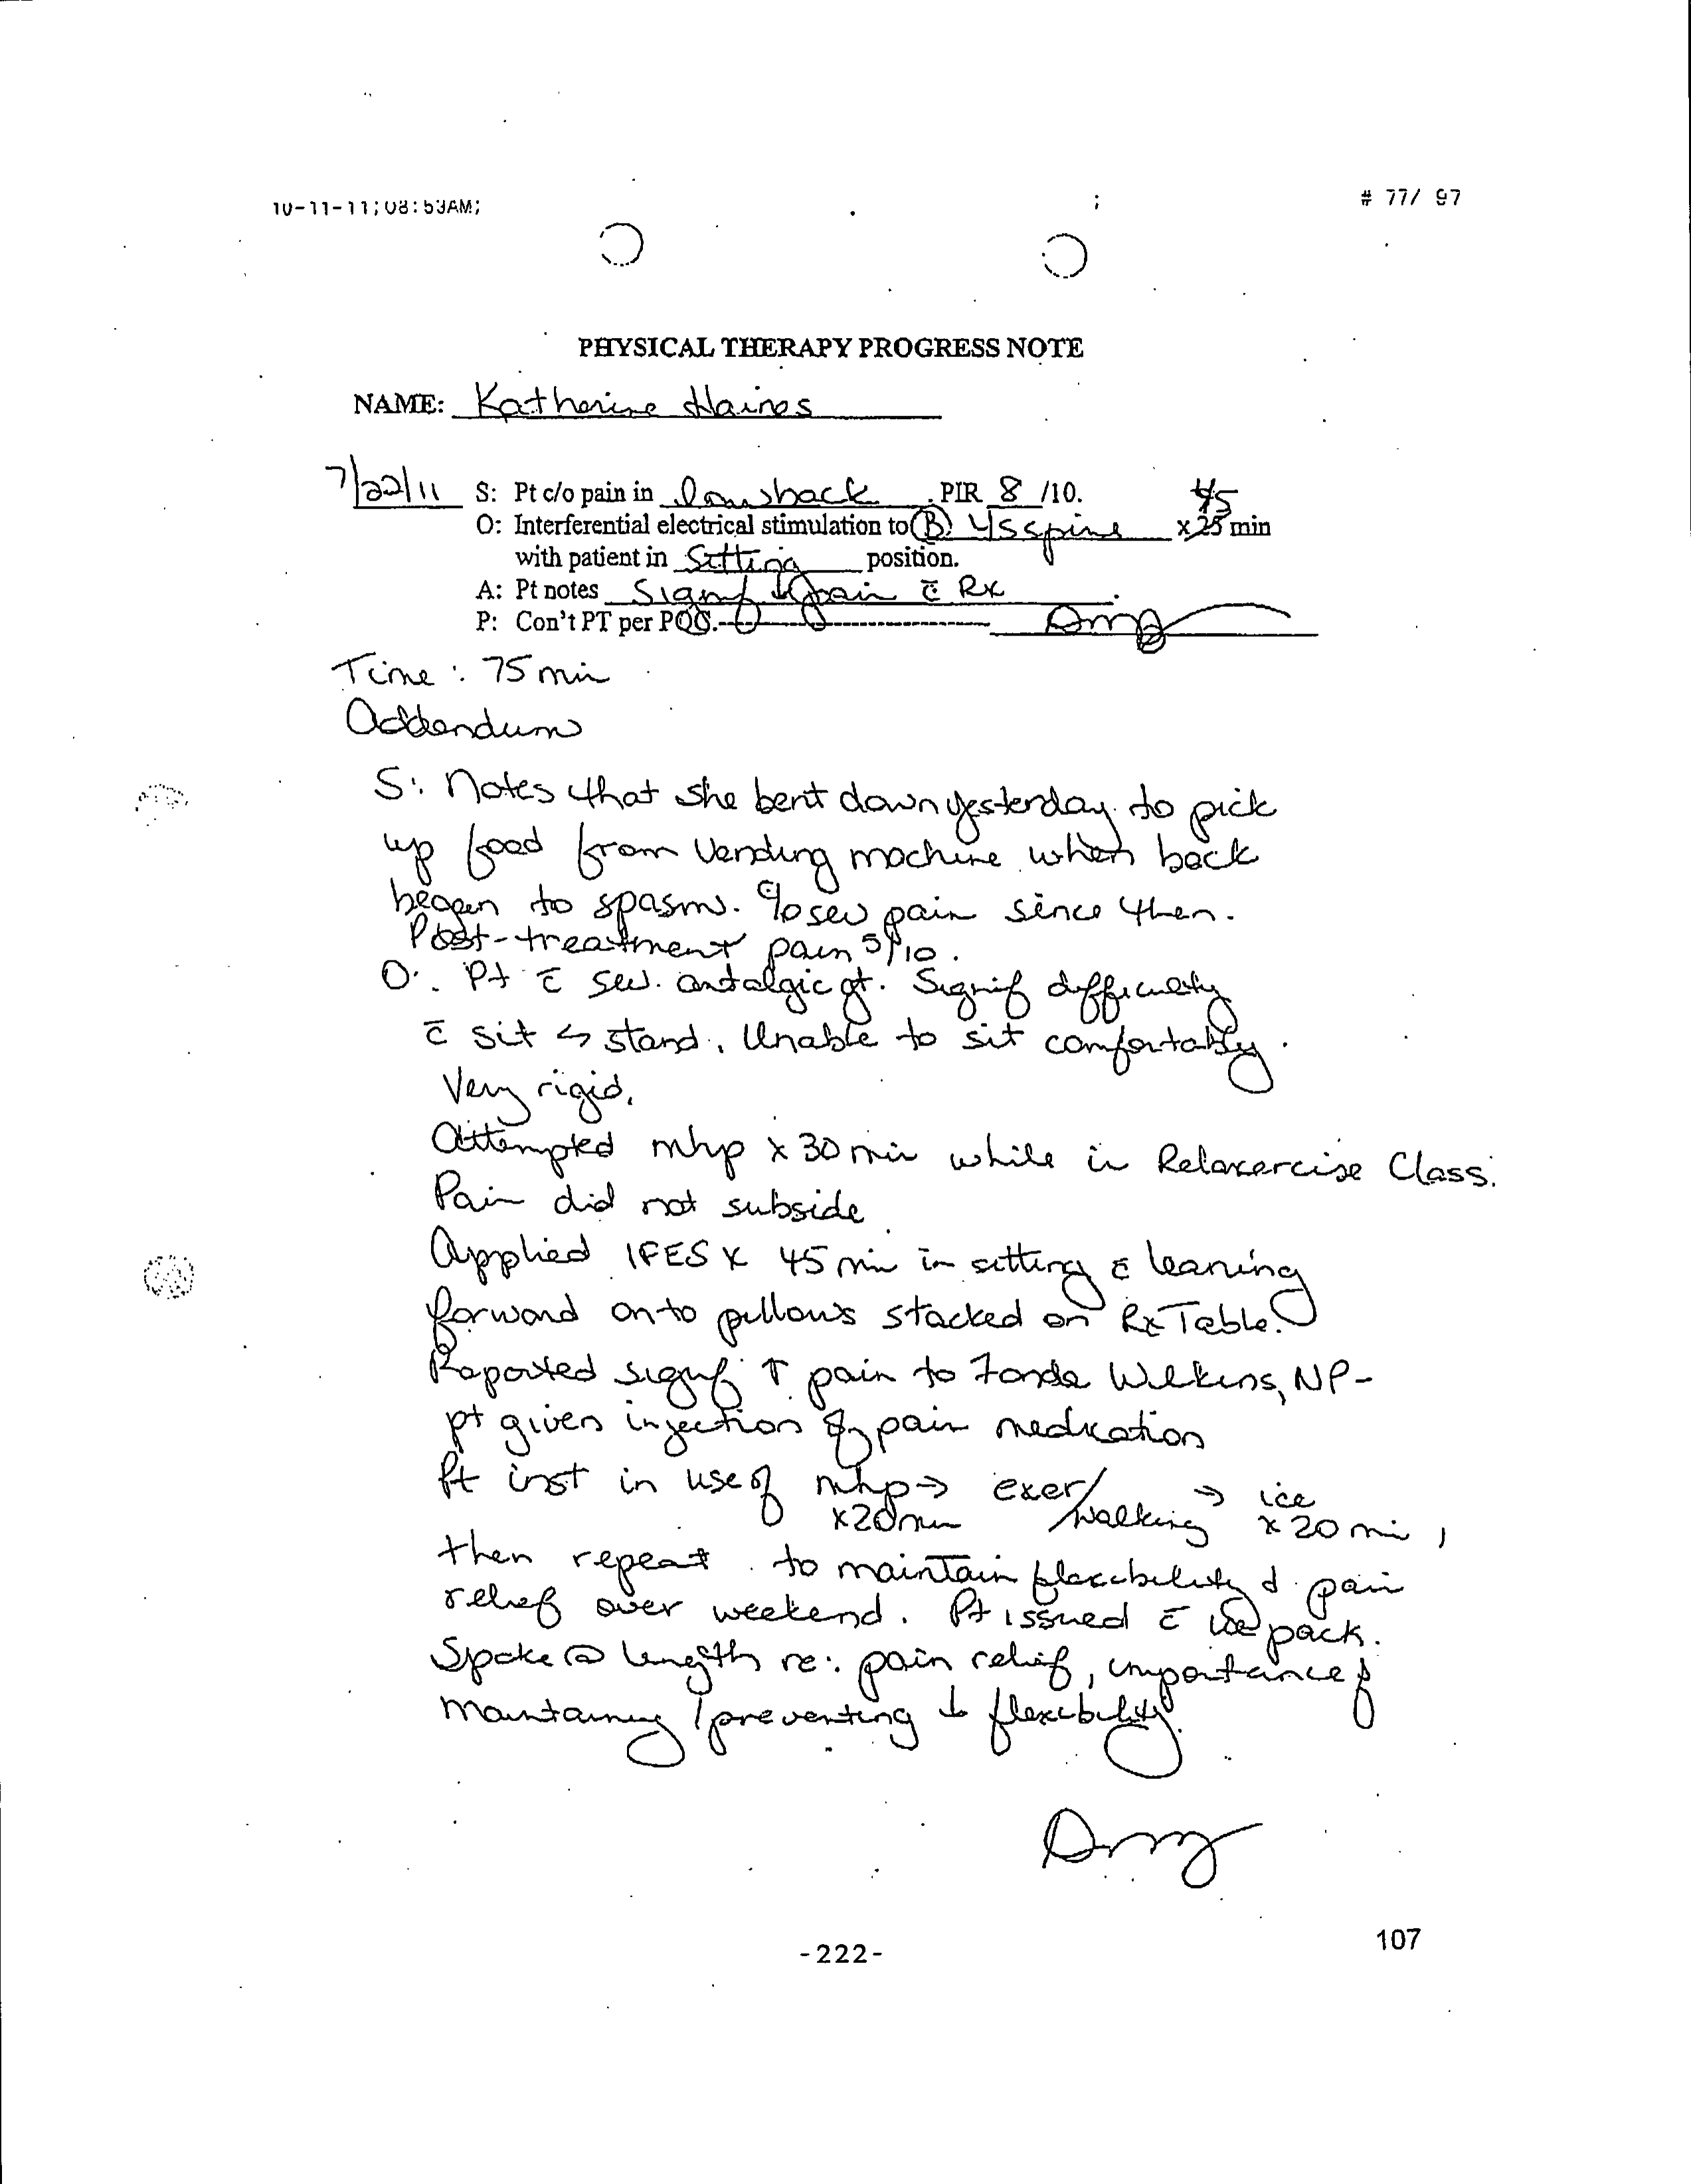 10-11-11;08:53AM;
;
# 77/ 97
PHYSICAL THERAPY PROGRESS NOTE
NAME: Katherine Haines
7/22/11 S: Pt c/o pain in low back . PIR 8 /10.
45
O: Interferential electrical stimulation to (B) L/S spine x 25 min
with patient in Sitting position.
A: Pt notes Signif ↓ pain c̄ Rx .
P: Con't PT per POC.
Time : 75 min
Addendum
S: Notes that she bent down yesterday to pick
up food from vending machine when back
began to spasm. c/o sev pain since then.
Post-treatment pain 5/10.
O: Pt c̄ sev. antalgic gt. Signif difficulty
c̄ sit ↔ stand. Unable to sit comfortably.
Very rigid.
Attempted mhp x 30 min while in Relaxercise Class.
Pain did not subside
Applied IFES x 45 min in sitting c̄ leaning
forward onto pillows stacked on Rx Table.
Reported signif ↑ pain to Fonda Wilkins, NP-
pt given injection of pain medication
Pt inst in use of mhp ⇒ exer/ ⇒ ice
x20 min walking x 20 min,
then repeat to maintain flexibility & pain
relief over weekend. Pt issued c̄ ice pack.
Spoke @ length re: pain relief, importance of
maintaining / preventing ↓ flexibility.
-222-
107